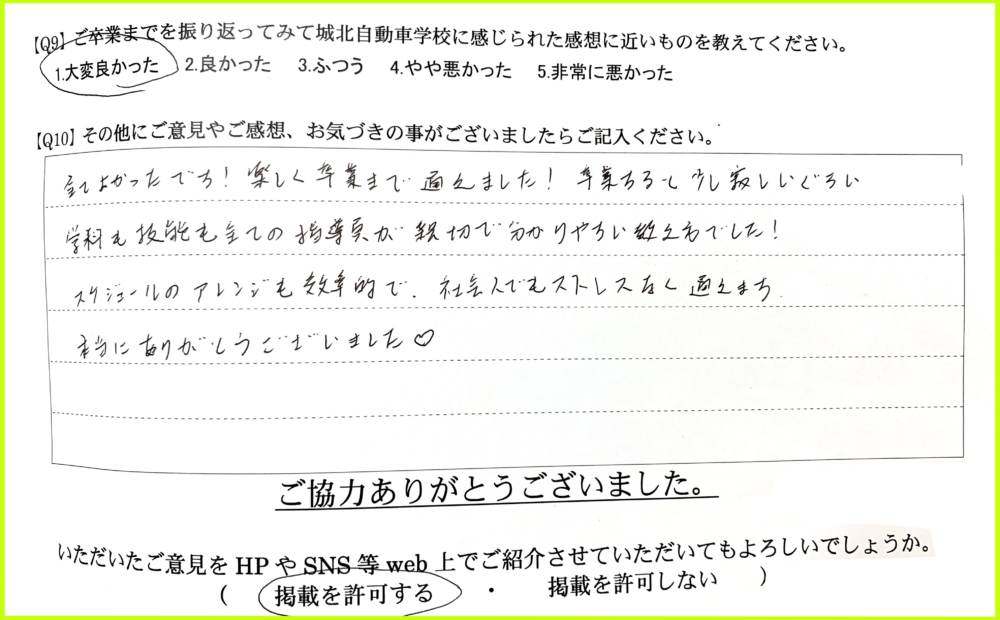 【Q9】ご卒業までを振り返ってみて城北自動車学校に感じられた感想に近いものを教えてください。
1.大変良かった 2.良かった 3.ふつう 4.やや悪かった 5.非常に悪かった
【Q10】その他にご意見やご感想、お気づきの事がございましたらご記入ください。
全てよかったです！楽しく卒業まで通えました！卒業すると少し寂しいぐらい
学科も技能も全ての指導員が親切で分かりやすい教え方でした！
スケジュールのアレンジも効率的で、社会人でもストレスなく通えます
本当にありがとうございました♡
ご協力ありがとうございました。
いただいたご意見をHPやSNS等web上でご紹介させていただいてもよろしいでしょうか。
（ 掲載を許可する ・ 掲載を許可しない ）